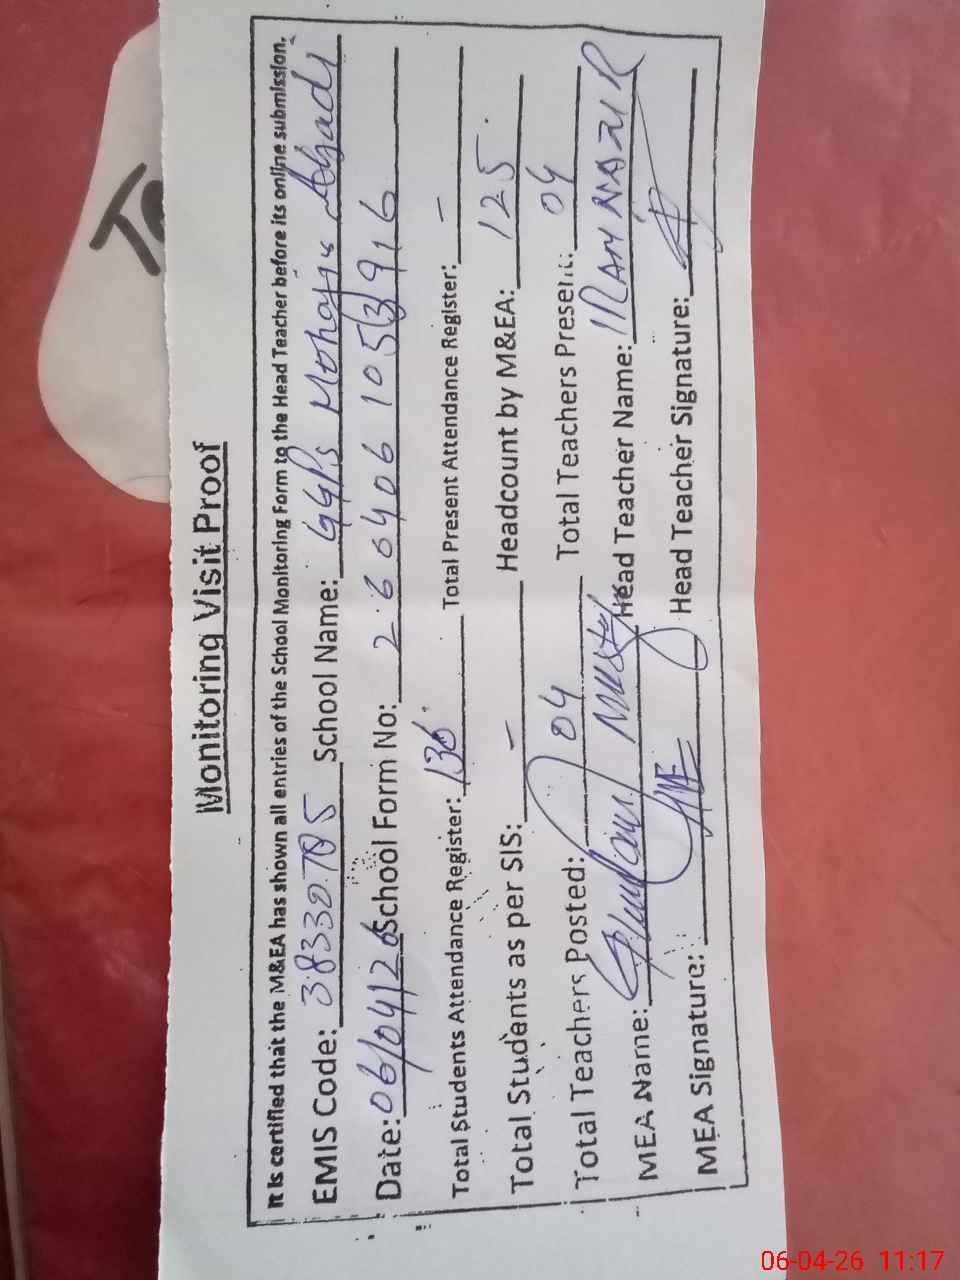 Monitoring Visit Proof
It is certified that the M&EA has shown all entries of the School Monitoring Form to the Head Teacher before its online submission.
EMIS Code: 38330785 School Name: GGPS Mohajir Abadi
Date: 06/04/26 School Form No: 2604061053916
Total Students Attendance Register: 136 Total Present Attendance Register: -
Total Students as per SIS: - Headcount by M&EA: 125
Total Teachers Posted: 04 Total Teachers Present: 04
MEA Name: Head Teacher Name: IRAM NAZIR
MEA Signature: Head Teacher Signature:
06-04-26 11:17